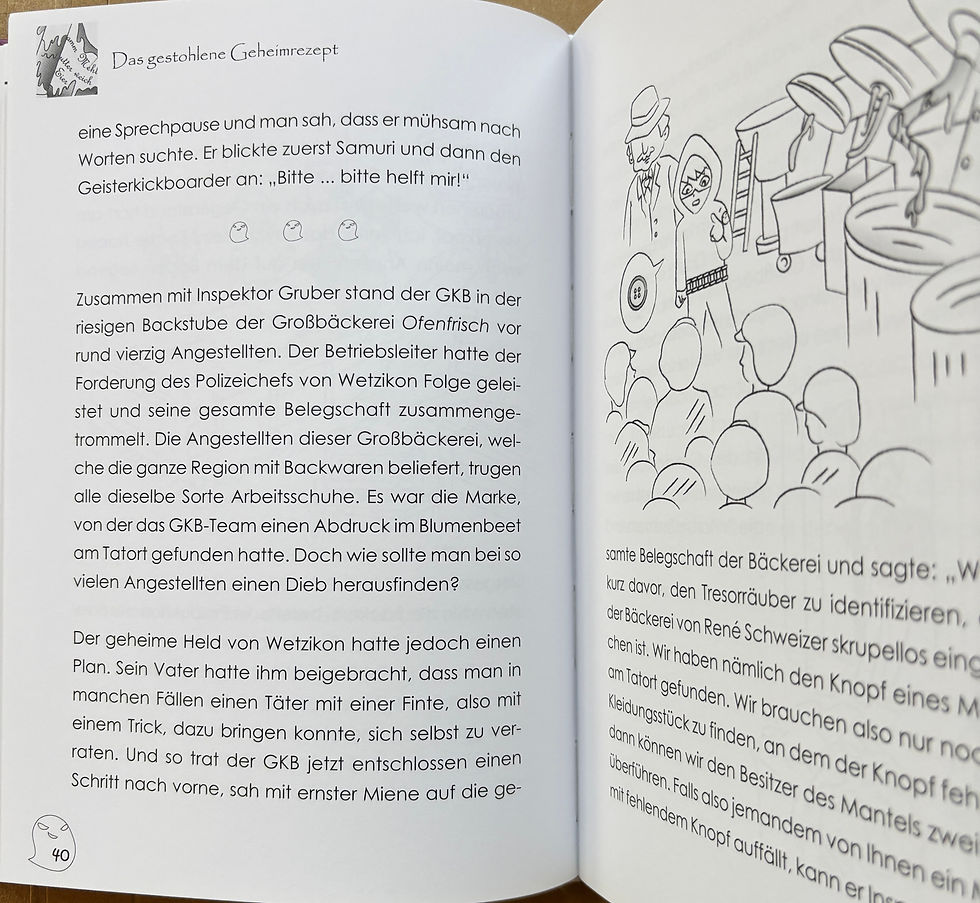 Das gestohlene Geheimrezept
eine Sprechpause und man sah, dass er mühsam nach
Worten suchte. Er blickte zuerst Samuri und dann den
Geisterkickboarder an: „Bitte ... bitte helft mir!“
Zusammen mit Inspektor Gruber stand der GKB in der
riesigen Backstube der Großbäckerei Ofenfrisch vor
rund vierzig Angestellten. Der Betriebsleiter hatte der
Forderung des Polizeichefs von Wetzikon Folge gelei-
stet und seine gesamte Belegschaft zusammenge-
trommelt. Die Angestellten dieser Großbäckerei, wel-
che die ganze Region mit Backwaren beliefert, trugen
alle dieselbe Sorte Arbeitsschuhe. Es war die Marke,
von der das GKB-Team einen Abdruck im Blumenbeet
am Tatort gefunden hatte. Doch wie sollte man bei so
vielen Angestellten einen Dieb herausfinden?
Der geheime Held von Wetzikon hatte jedoch einen
Plan. Sein Vater hatte ihm beigebracht, dass man in
manchen Fällen einen Täter mit einer Finte, also mit
einem Trick, dazu bringen konnte, sich selbst zu ver-
raten. Und so trat der GKB jetzt entschlossen einen
Schritt nach vorne, sah mit ernster Miene auf die ge-
40
samte Belegschaft der Bäckerei und sagte: „W
kurz davor, den Tresorräuber zu identifizieren,
der Bäckerei von René Schweizer skrupellos eing
chen ist. Wir haben nämlich den Knopf eines M
am Tatort gefunden. Wir brauchen also nur noc
Kleidungsstück zu finden, an dem der Knopf feh
dann können wir den Besitzer des Mantels zwei
überführen. Falls also jemandem von Ihnen ein M
mit fehlendem Knopf auffällt, kann er Ins